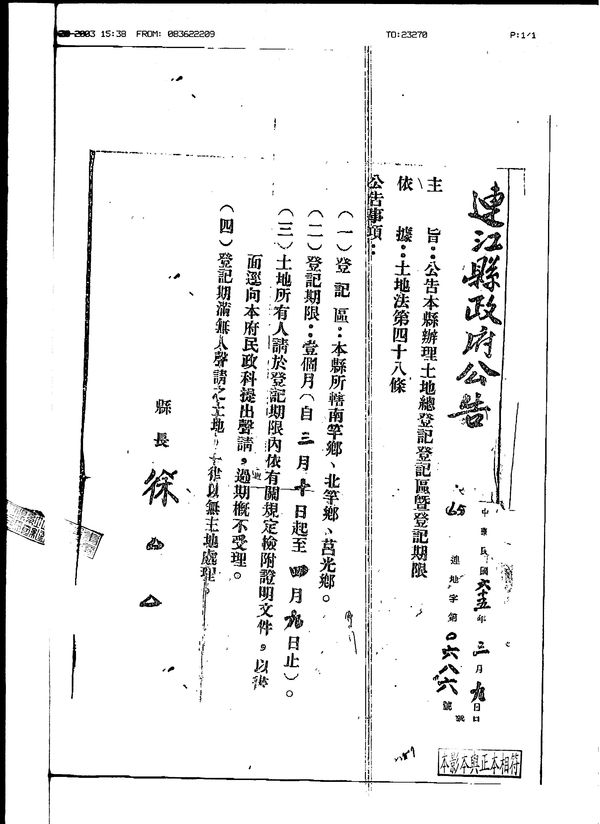 2003 15:38 FROM: 083622209 TO:23270 P:1/1
連江縣政府公告
中華民國六十五年三月九日
65連地字第0六八六號
主旨：公告本縣辦理土地總登記登記區暨登記期限
依據：土地法第四十八條
公告事項：
（一）登記區：本縣所轄南竿鄉、北竿鄉、莒光鄉。
（二）登記期限：壹個月（自三月十日起至四月九日止）。
（三）土地所有人請於登記期限內依有關規定檢附證明文件，以書
面逕向本府民政科提出聲請，過期概不受理。
（四）登記期滿無人聲請之土地一律以無主地處理。
縣長 徐
本影本與正本相符